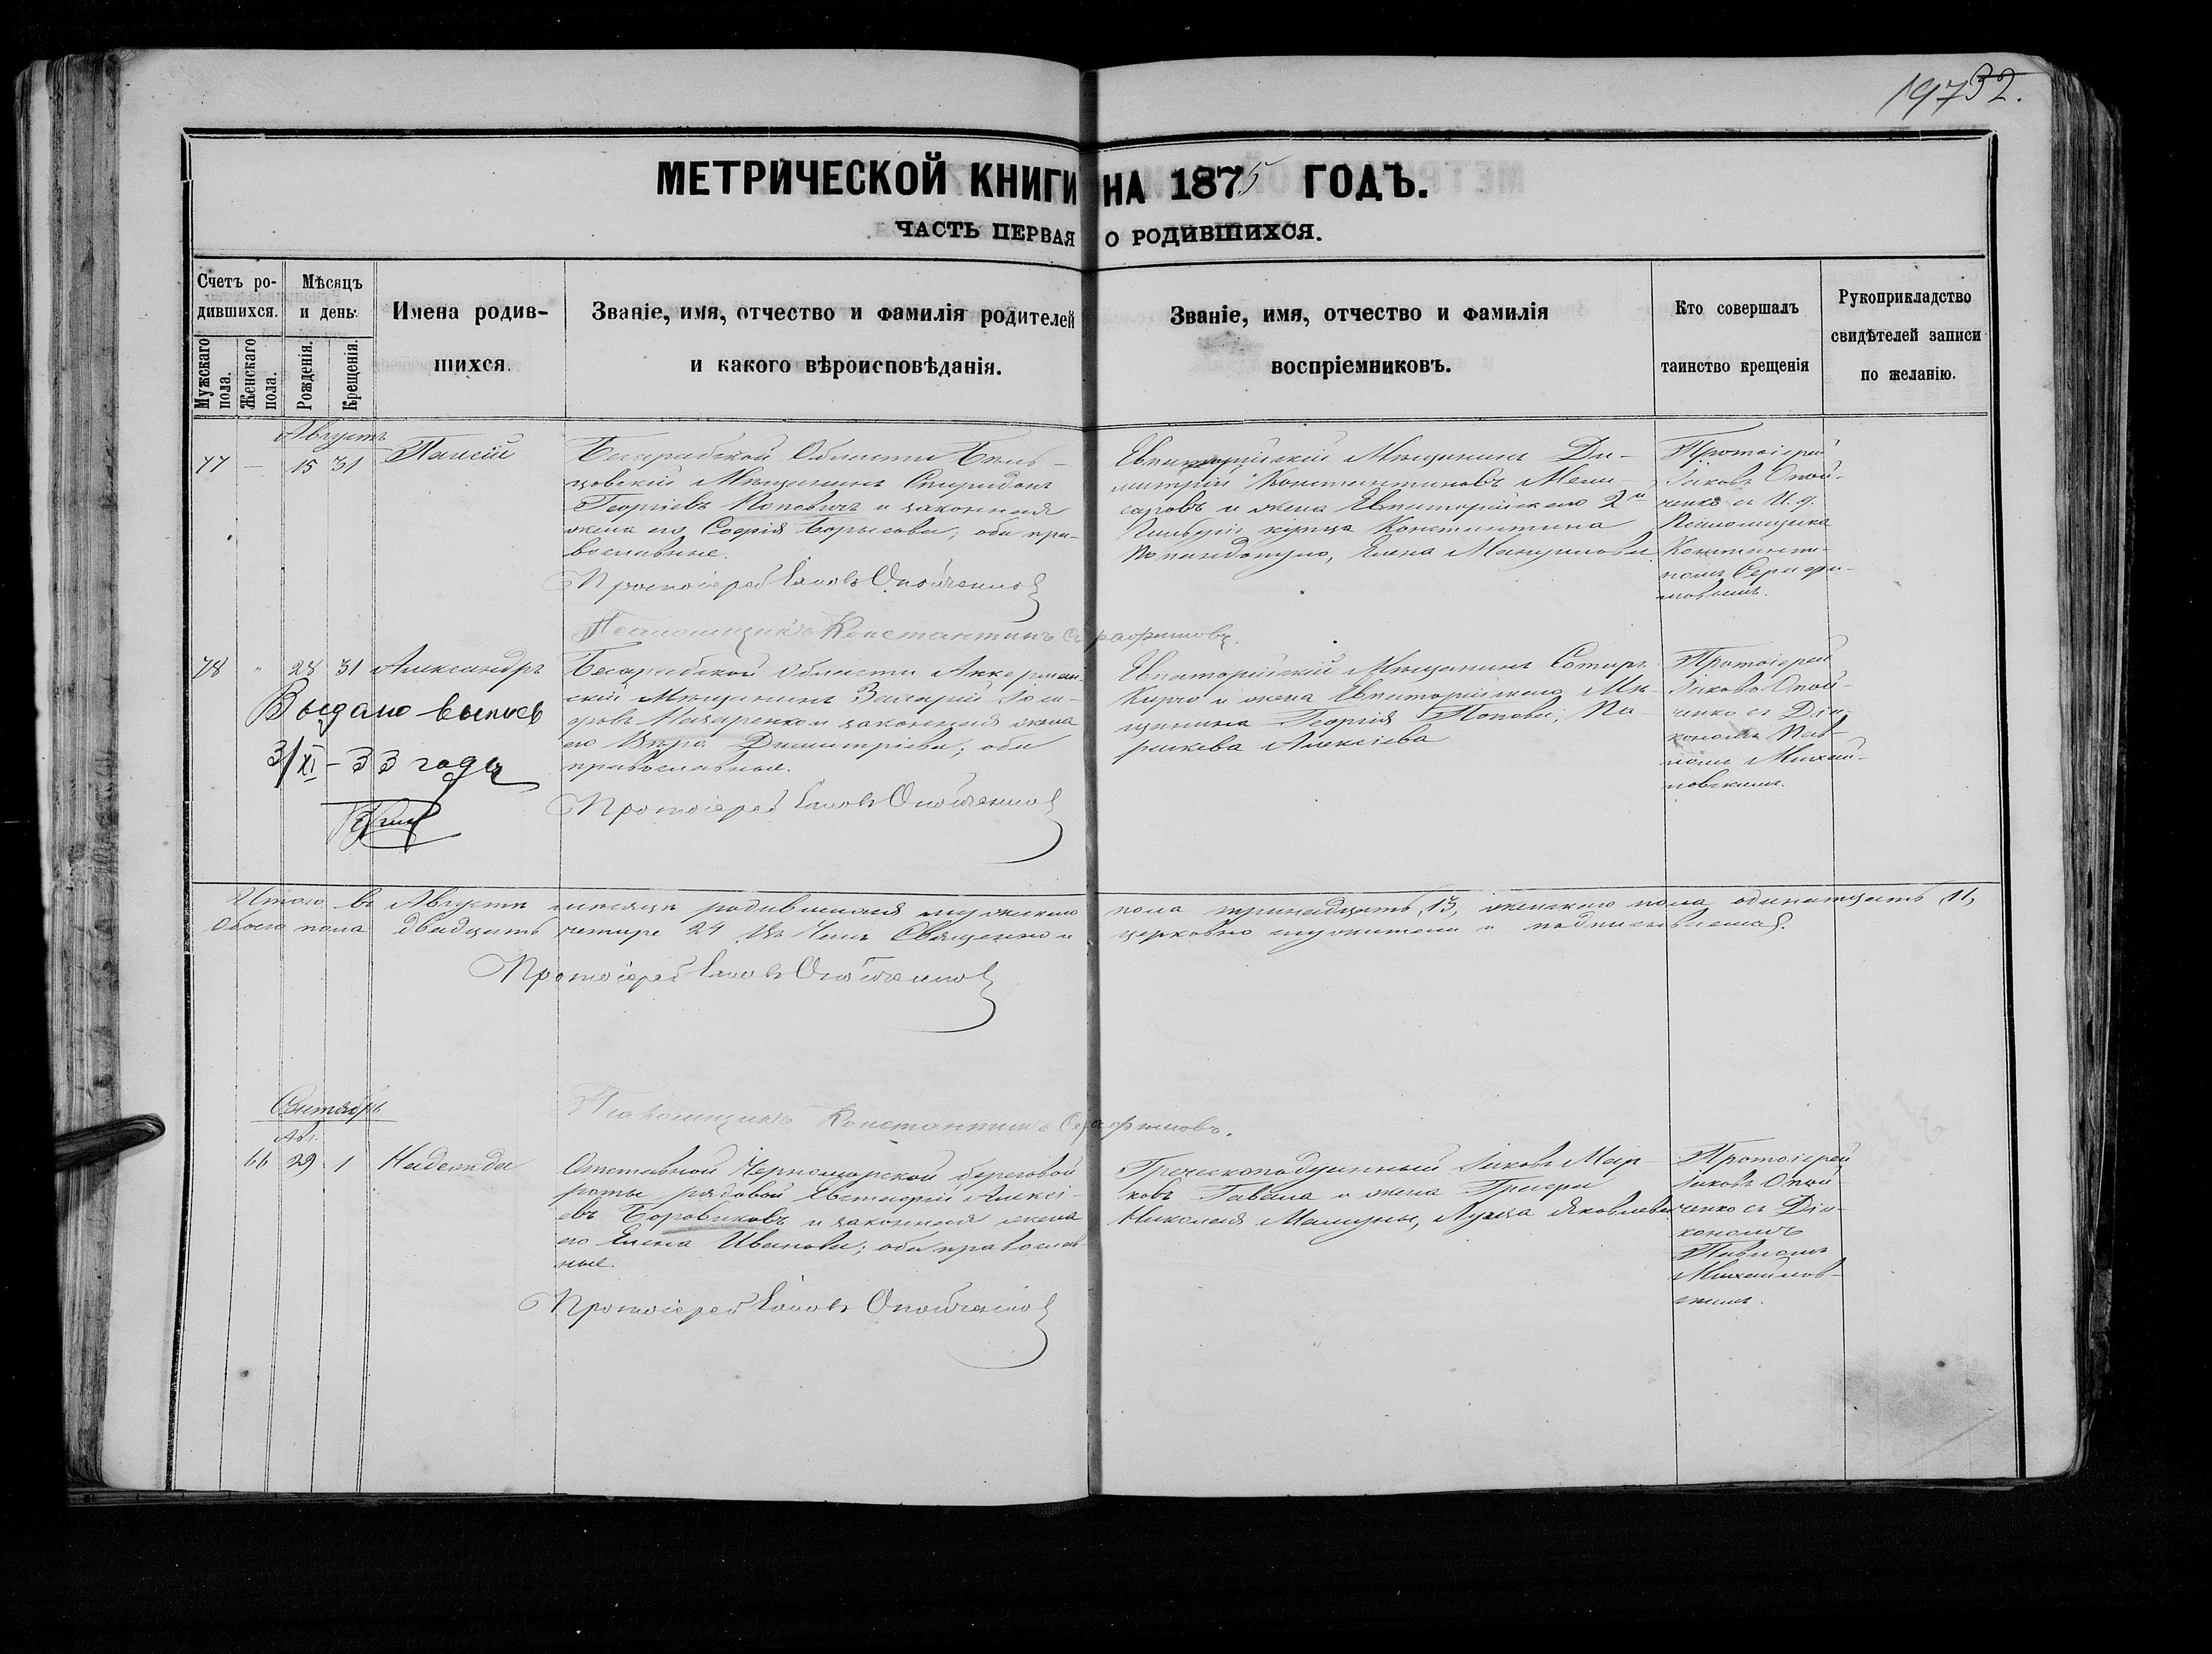 19732.
МЕТРИЧЕСКОЙ КНИГИ НА 1875 ГОДЪ.
ЧАСТЬ ПЕРВАЯ О РОДИВШИХСЯ.
Счетъ ро-
дившихся.
Мужскаго пола.
Женскаго пола.
Мѣсяцъ
и день.
Рожденія.
Крещенія.
Имена родив-
шихся.
Званіе, имя, отчество и фамилія родителей
и какого вѣроисповѣданія.
Званіе, имя, отчество и фамилія
воспріемниковъ.
Кто совершалъ
таинство крещенія
Рукоприкладство
свидѣтелей записи
по желанію.
Августъ
77 – 15 31 Паисій
Бесарабской Области Бѣль-
цовскій Мѣщанинъ Спиридонъ
Георгіевъ Поповичъ и законная
жена его Софія Борисова; оба пра-
вославные.
Протоіерей Іаковъ Опойченко
Псаломщикъ Константинъ Серафимовъ.
Евпаторійскій Мѣщанинъ Ди-
митрій Константиновъ
и жена Евпаторійскаго 2й
Гильдіи купца Константина
Попандопуло, Елена
Протоіерей
Іаковъ Опой-
ченко съ И. д.
Псаломщика
Константи-
номъ Серафи-
мовымъ.
78 " 28 31 Александръ
Выдано выпись
3/XI – 33 года
Бесарабской Области Аккерман-
скій Мѣщанинъ Захарій
Назаренко и законная жена
его Вѣра Димитріева; оба
православные.
Протоіерей Іаковъ Опойченко
Евпаторійскій Мѣщанинъ Сотиръ
и жена Евпаторійскаго Мѣ-
щанина Георгія Попова, Па-
раскева Алексіева
Протоіерей
Іаковъ Опой-
ченко съ Діа-
кономъ Пав-
ломъ Михай-
ловскимъ.
Итого въ Августѣ мѣсяцѣ родившихся мужескаго пола тринадцать, 13, женскаго пола одинатцать, 11,
Обоего пола двадцать четыре 24 Въ чемъ Священно и церковно служители и подписываемся.
Протоіерей Іаковъ Опойченко
Псаломщикъ Константинъ Серафимовъ.
Сентябрь
Авг.
66 29 1 Надежда
Отставной Черноморской береговой
роты рядовой Евстафій Алексі-
евъ Боровиковъ и законная жена
его Елена Иванова; оба православ-
ные.
Протоіерей Іаковъ Опойченко
Греческоподданный Іаковъ Мар-
ковъ Гавала и жена Грека
Николая Яковлева
Протоіерей
Іаковъ Опой
ченко съ Діа-
кономъ
Павломъ
Михайлов-
скимъ.